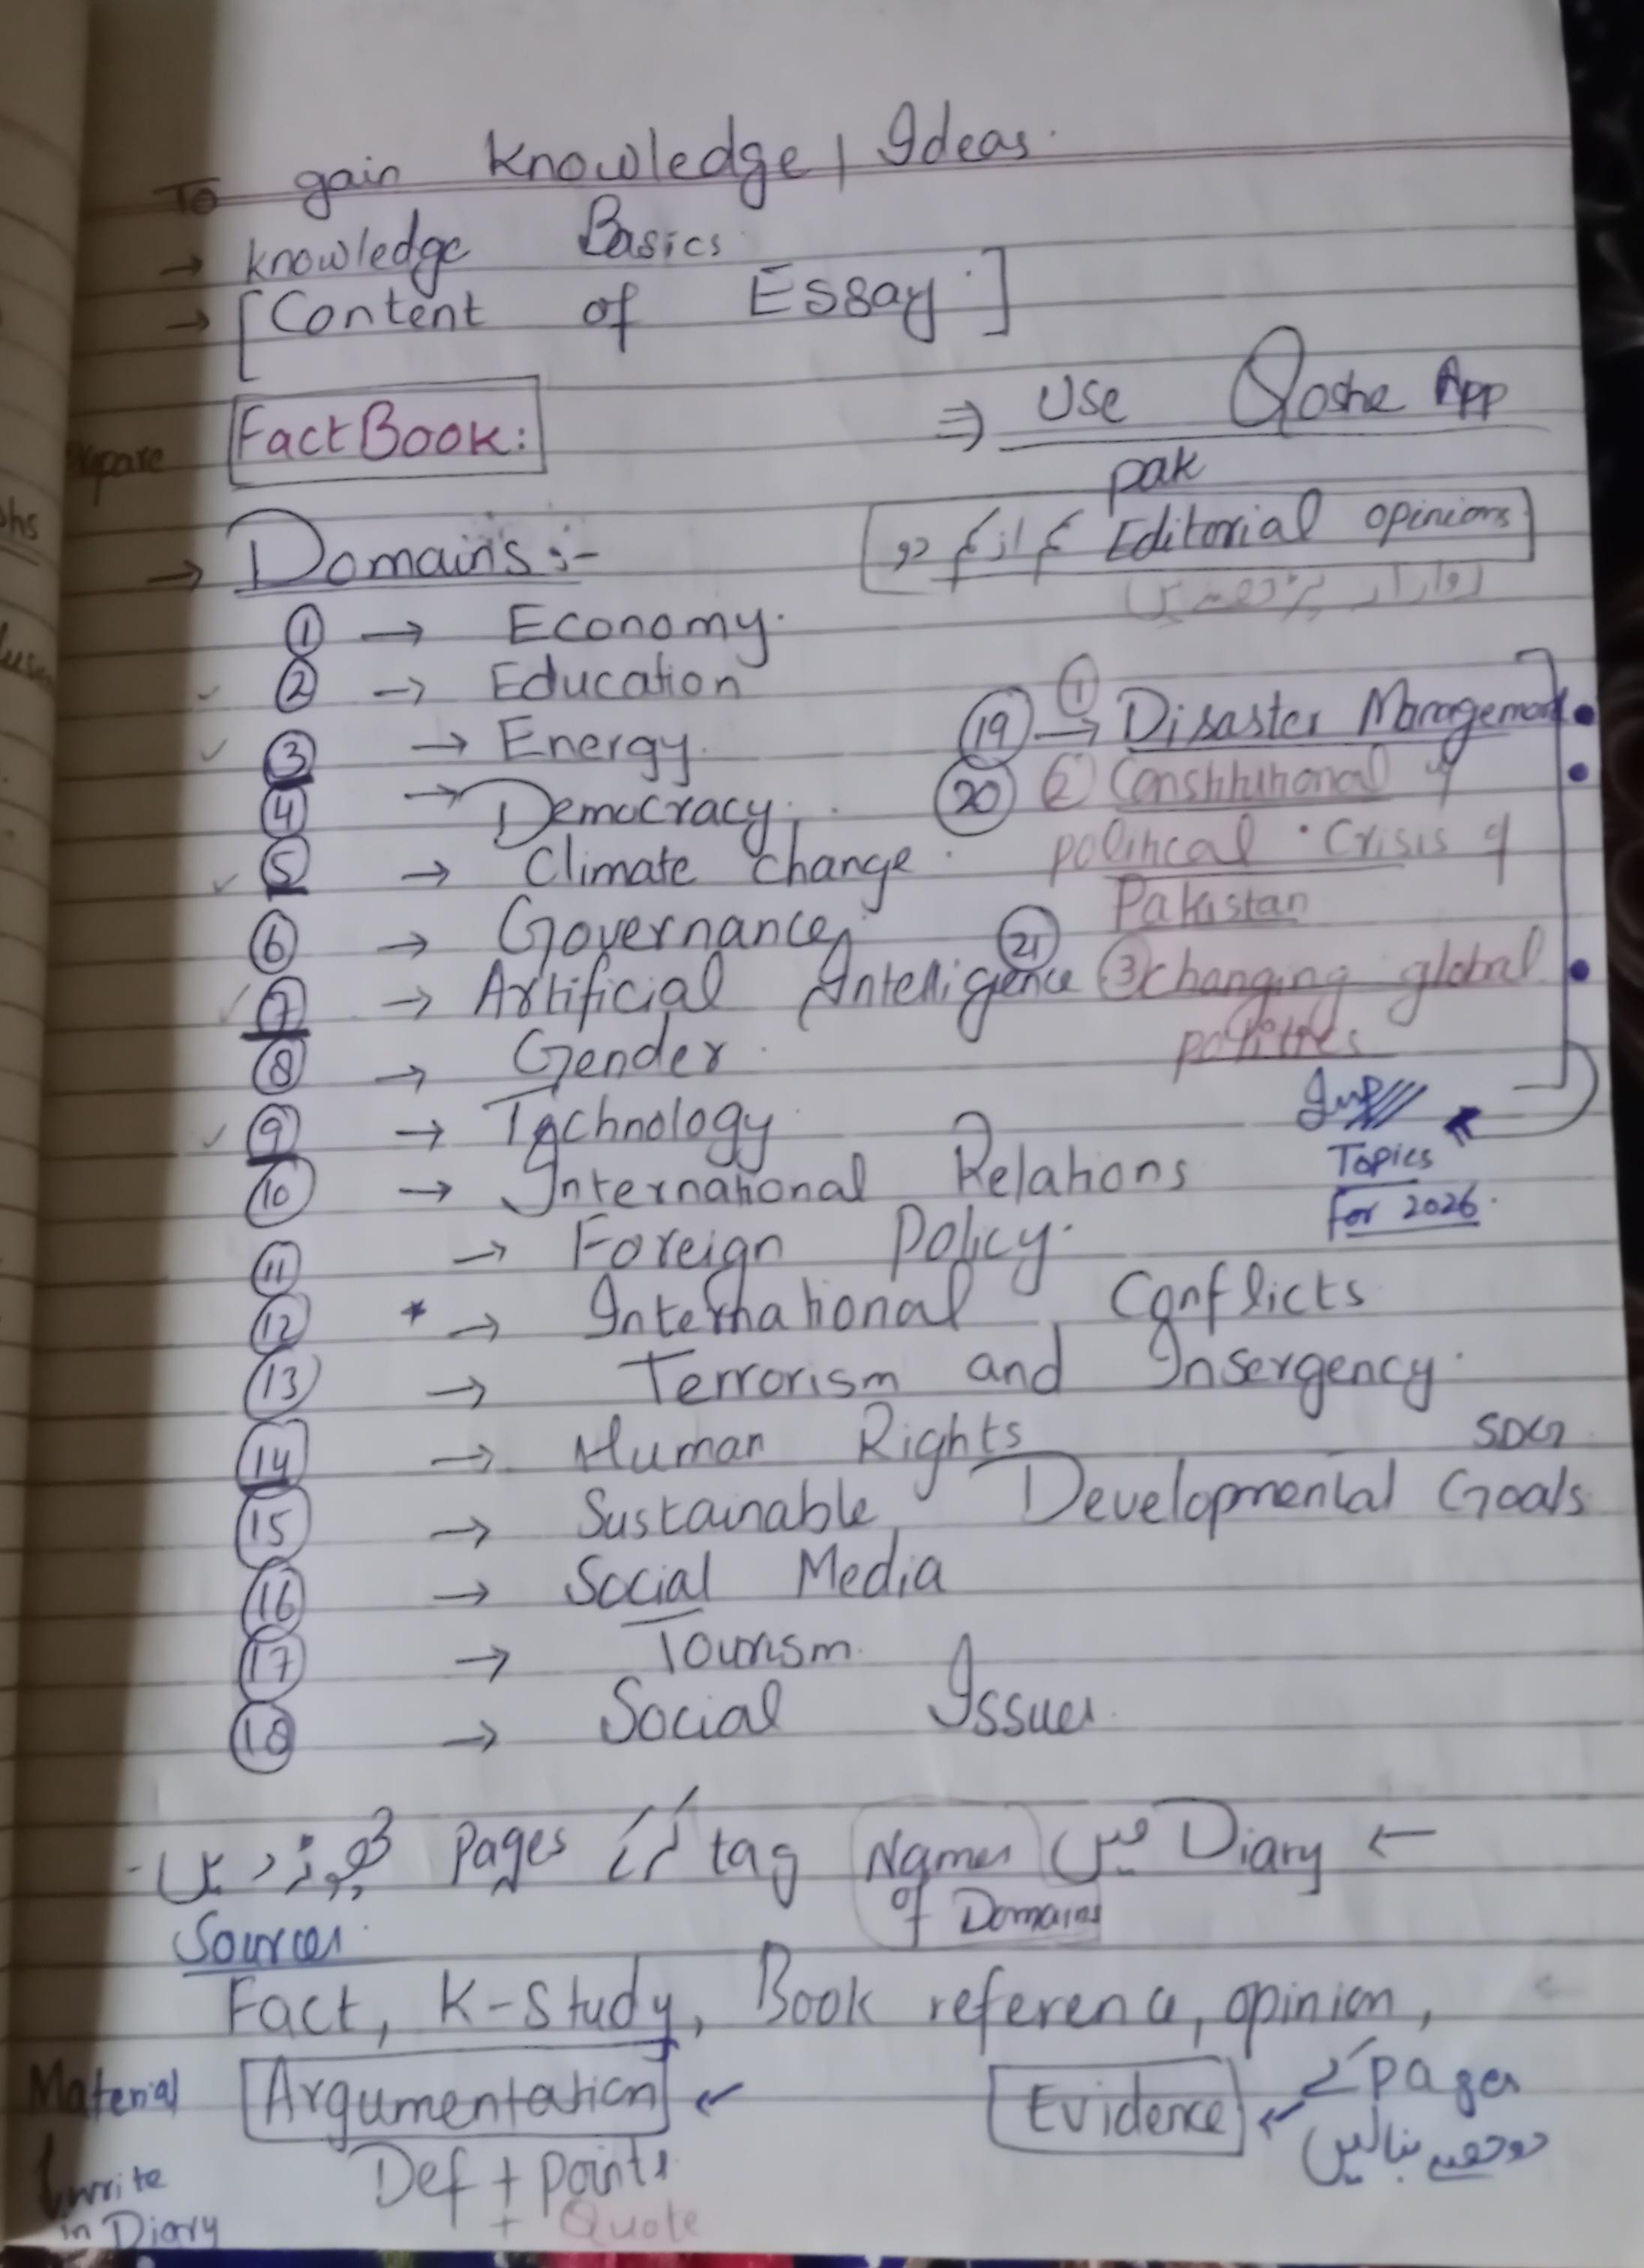 To gain knowledge / Ideas.
→ knowledge Basics
→ [Content of Essay.]
FactBook:
⇒ Use Qoshe App
pak
کم از کم دو Editorial opinions
→ Domains :-
① → Economy.
② → Education
③ → Energy.
④ → Democracy.
⑤ → Climate change.
⑥ → Governance
⑦ → Artificial Intelligence
⑧ → Gender.
⑨ → Technology
⑩ → International Relations
⑪ → Foreign Policy.
⑫ * → International Conflicts
⑬ → Terrorism and Insergency.
⑭ → Human Rights
SDG
⑮ → Sustainable Developmental Goals
⑯ → Social Media
⑰ → Tourism.
⑱ → Social Issues
⑲ ① → Disaster Management
⑳ ② Constitutional
political Crisis of
Pakistan
㉑ ③ changing global
politics
Imp
Topics
for 2026.
← Diary میں Names tag کر کے pages چھوڑ دیں۔
of Domains
Sources
Fact, K-study, Book reference, opinion,
Material
Argumentation
Evidence
pages کے
دو حصے بنالیں
Def + points
+ Quote
write
in Diary